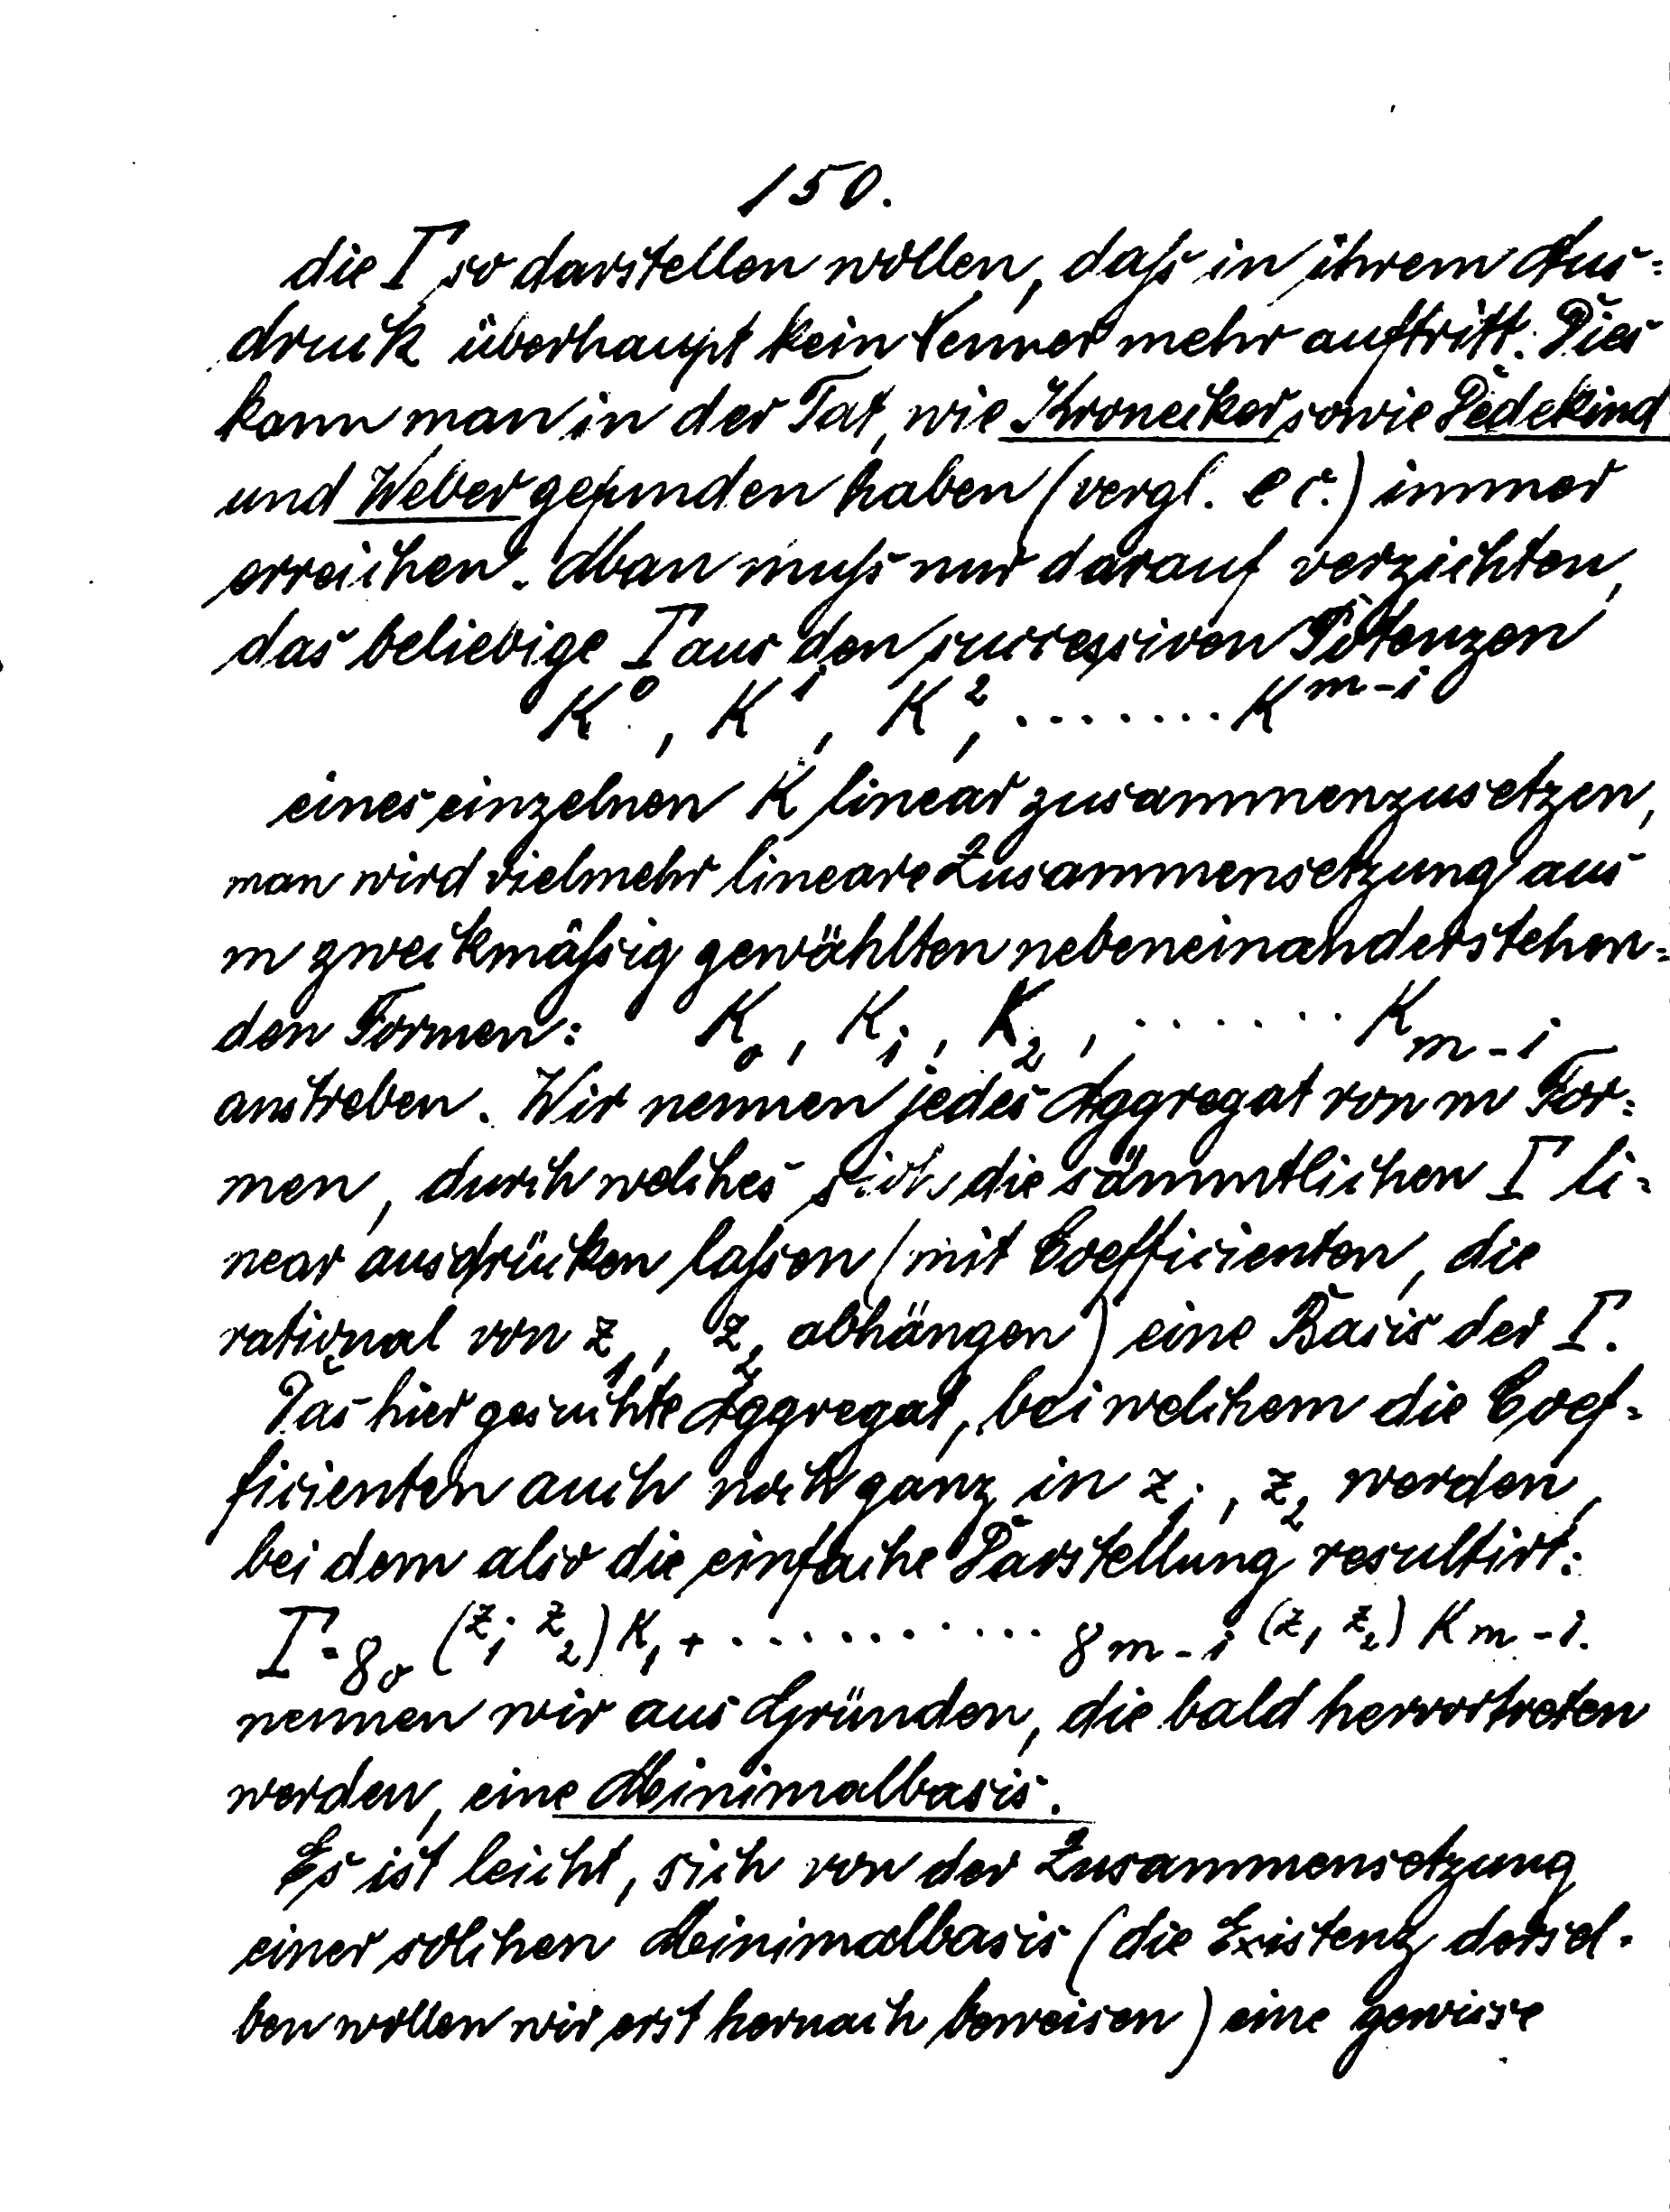 150.
die Γ so darstellen wollen, daſs in ihrem Aus=
druck überhaupt kein Nenner mehr auftritt. Dies
kann man in der Tat, wie Kronecker sowie Dedekind
und Weber gefunden haben (vergl. l c.) immer
erreichen. Man muſs nur darauf verzichten,
das beliebige Γ aus den successiven Potenzen
K⁰, K¹, K², ....... Kᵐ⁻¹
eines einzelnen K linear zusammenzusetzen,
man wird vielmehr lineare Zusammensetzung aus
m zweckmäſsig gewählten nebeneinanderstehen=
den Formen: K₀, K₁, K₂, ....... Kₘ₋₁
anstreben. Wir nennen jedes Aggregat von m For=
men, durch welches sich die sämmtlichen Γ li=
near ausdrücken laſsen (mit Coefficienten, die
rational von z₁, z₂ abhängen) eine Basis der Γ.
Das hier gesuchte Aggregat, bei welchem die Coef=
ficienten auch noch ganz in z₁, z₂ werden,
bei dem also die einfache Darstellung resultirt:
Γ = g₀ (z₁ z₂) K₁ + .......... gₘ₋₁ (z₁ z₂) Kₘ₋₁.
nennen wir aus Gründen, die bald hervortreten
werden, eine Minimalbasis.
Es ist leicht, sich von der Zusammensetzung
einer solchen Minimalbasis (die Existenz dersel=
ben wollen wir erst hernach beweisen) eine gewisse